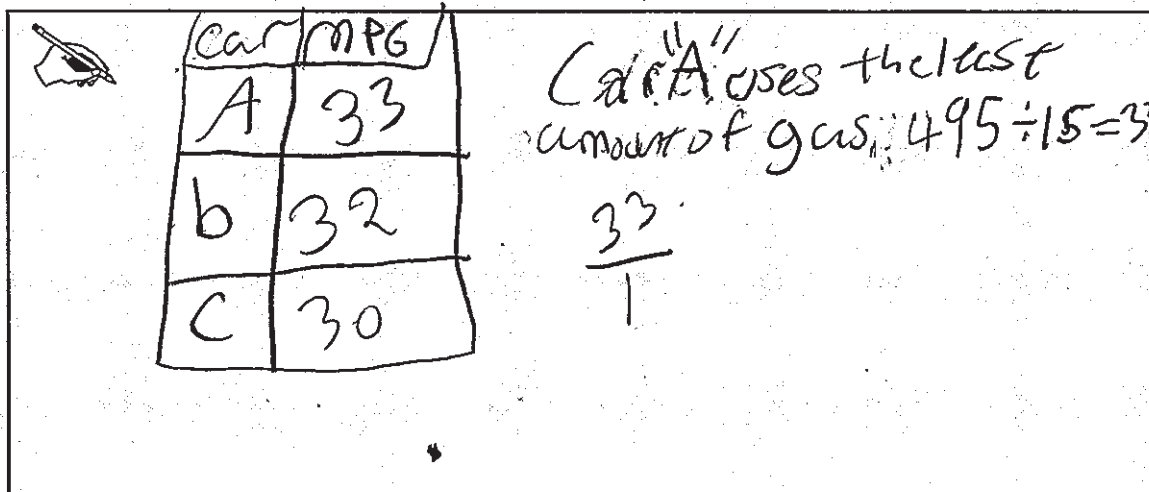 car MPG
A 33
b 32
C 30
Car "A" uses the least
amount of gas. 495÷15=3
33
1